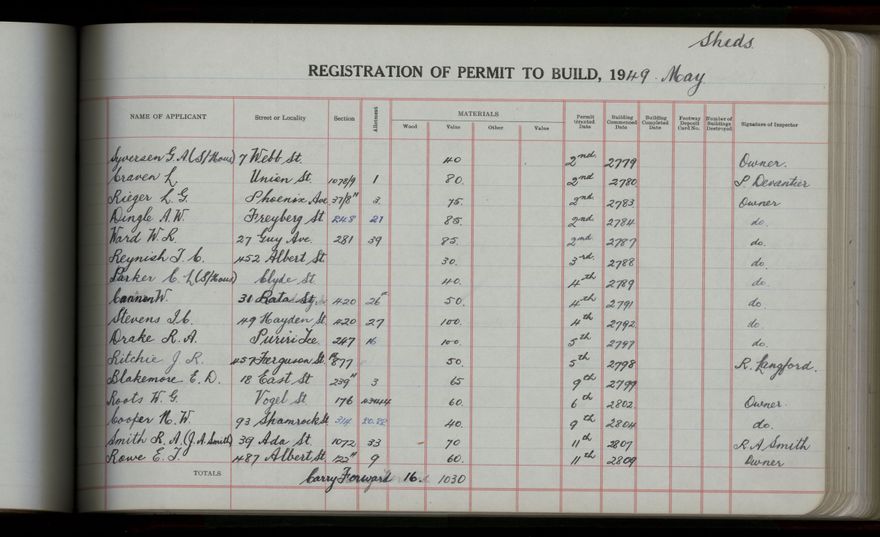 Sheds.
REGISTRATION OF PERMIT TO BUILD, 1949. May
NAME OF APPLICANT Street or Locality Section Allotment MATERIALS Permit Granted Date Building Commenced Date Building Completed Date Footway Deposit Card No. Number of Buildings Destroyed Signature of Inspector
Wood Value Other Value
Syversen G. A (S/House) 7 Webb St. 40 2nd 2779 Owner.
Craven L. Union St. 1078/9 1 80. 2nd 2780 Devantier
Rieger L. G. Phoenix Ave. 3 75. 2nd 2783 Owner
Dingle A. W. Freyberg St. 85. 2nd 2784 do.
Ward W. R. 27 Guy Ave. 281 39 85. 2nd 2787 do.
Reynish T. C. 452 Albert St. 30. 3rd 2788 do.
Parker C. L (S/House) Clyde St. 40. 4th 2789 do.
Cannon W. 31 Rata St. 420 26 50. 4th 2791 do.
Stevens 49 Hayden St. 420 27 100. 4th 2792 do.
Drake R. A. Puriri Tce. 247 16 100. 5th 2797 do.
Ritchie J R. 457 Ferguson St. 877 50. 5th 2798 R. Langford.
Blakemore E. D. 18 East St 239 3 65 9th 2799
Roots W. G. Vogel St 176 60. 6th 2802 Owner.
Cooper N. W. 93 Shamrock St 314 40. 9th 2804 do.
Smith R. A. (J A Smith) 39 Ada St. 1072 33 70 11th 2807 R A Smith
Rowe E. J. 487 Albert St. 9 60. 11th 2809 Owner
TOTALS Carry Forward 16. 1030